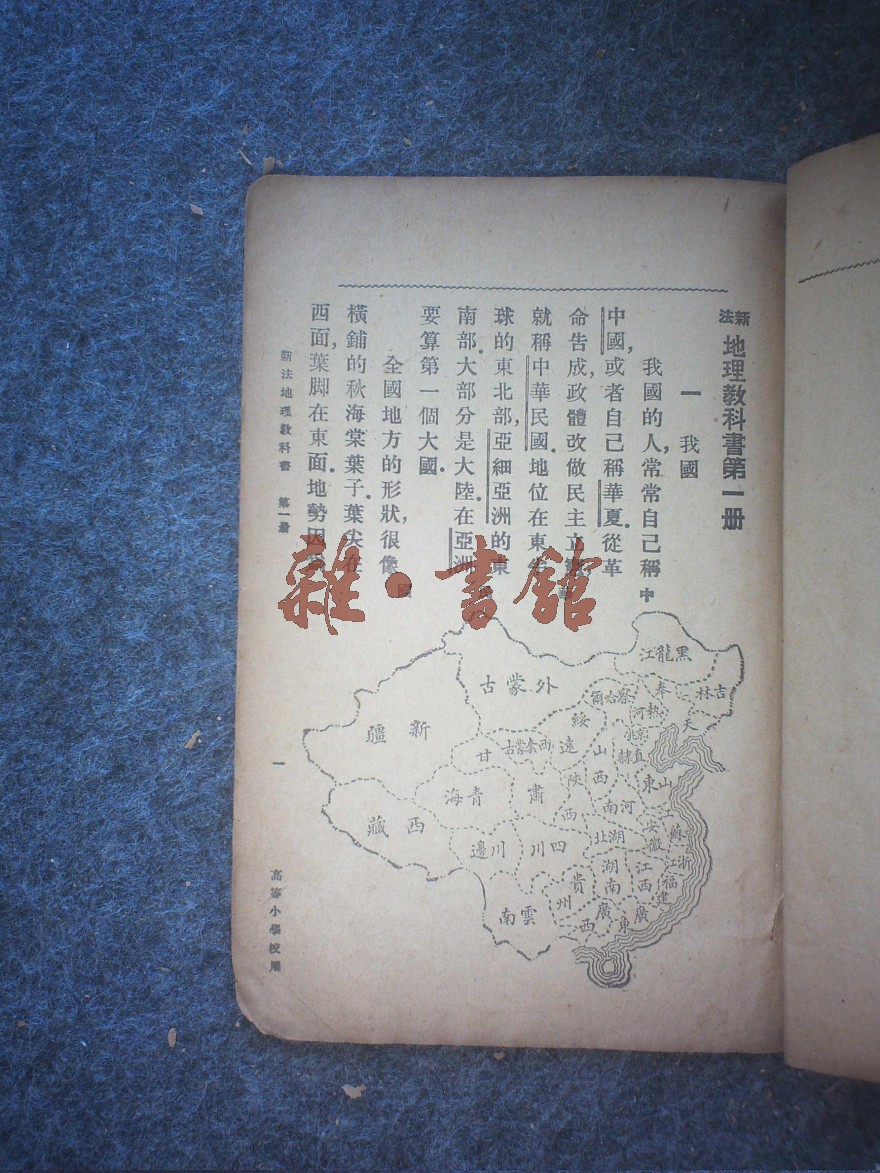 新法地理教科書第一册
一 我國
我國的人,常常自己稱
中國,或者自己稱華夏.從革
命告成,政體改做民主立
就稱中華民國.地位在東半
球的東北部,亞細亞洲的東
南部.大部分是大陸.在亞洲
要算第一個大國.
全國地方的形狀,很像
橫鋪的秋海棠葉子.葉尖在
西面,葉脚在東面.地勢因
新法地理教科書 第一册
一
高等小學校用
中
國
雜·書館
黑龍江
吉林
奉天
外蒙古
察哈爾
熱河
綏遠
京兆
直隸
新疆
甘肅
西套蒙古
山西
陝西
山東
青海
河南
江蘇
安徽
西藏
川邊
四川
湖北
浙江
湖南
江西
福建
貴州
雲南
廣西
廣東